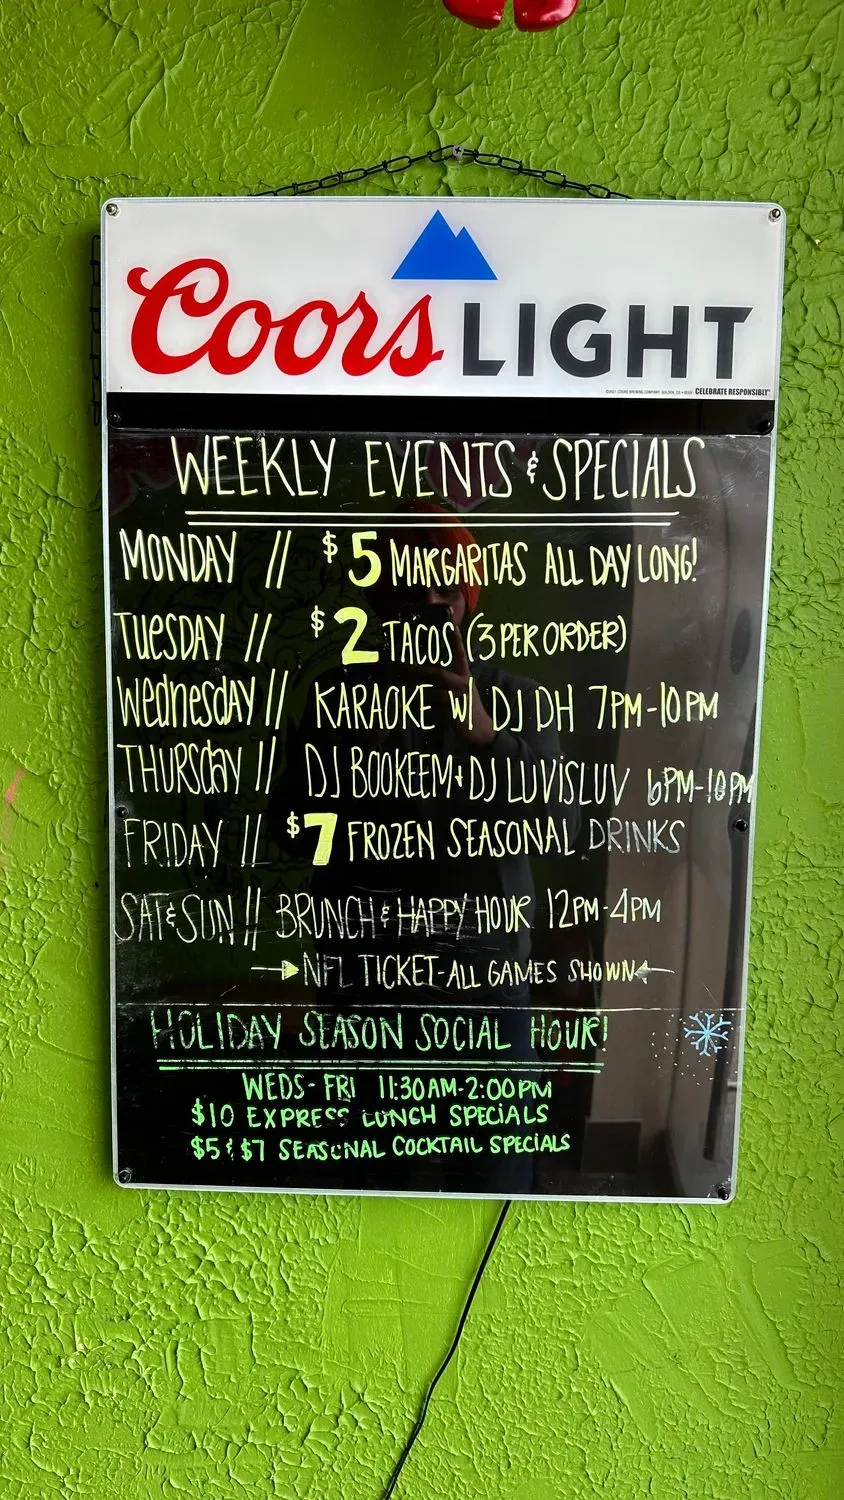 Coors LIGHT
CELEBRATE RESPONSIBLY
WEEKLY EVENTS & SPECIALS
MONDAY // $5 MARGARITAS ALL DAY LONG!
TUESDAY // $2 TACOS (3 PER ORDER)
Wednesday // KARAOKE w/ DJ DH 7PM-10PM
THURSday // DJ BOOKEEM + DJ LUViSLUV 6PM-10PM
FRIDAY // $7 FROZEN SEASONAL DRINKS
SAT & SUN // BRUNCH & HAPPY HOUR 12PM-4PM
→ NFL TICKET-ALL GAMES SHOWN ←
HOLIDAY SEASON SOCIAL HOUR!
WEDS- FRI 11:30AM-2:00PM
$10 EXPRESS LUNCH SPECiALS
$5 & $7 SEASONAL COCKTAIL SPECIALS